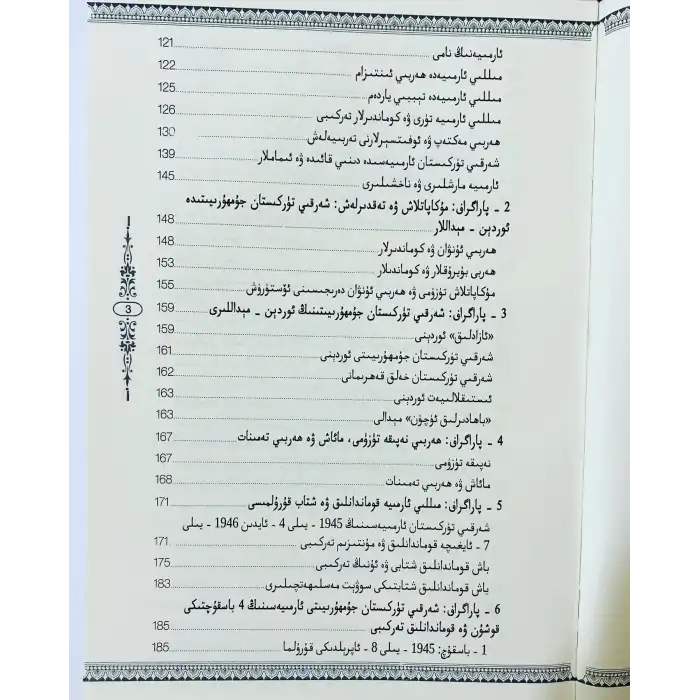 ئارمىيەنىڭ نامى 121
مىللىي ئارمىيەدە ھەربىي ئىنتىزام 122
مىللىي ئارمىيەدە تىببىي ياردەم 125
مىللىي ئارمىيە تۈرى ۋە كوماندىرلار تەركىبى 126
ھەربىي مەكتەپ ۋە ئوفىتسېرلارنى تەربىيەلەش 130
شەرقىي تۈركىستان ئارمىيەسىدە دىنىي قائىدە ۋە ئىماملار 139
ئارمىيە مارشلىرى ۋە ناخشىلىرى 145
2 - پاراگراف: مۇكاپاتلاش ۋە تەقدىرلەش: شەرقىي تۈركىستان جۇمھۇرىيىتىدە
ئوردېن - مېداللار 148
ھەربىي ئۇنۋان ۋە كوماندىرلار 148
ھەربى بۇيرۇقلار ۋە كوماندىلار 153
مۇكاپاتلاش تۈزۈمى ۋە ھەربىي ئۇنۋان دەرىجىسىنى ئۆستۈرۈش 155
3 - پاراگراف: شەرقىي تۈركىستان جۇمھۇرىيىتىنىڭ ئوردېن - مېداللىرى 159
«ئازادلىق» ئوردېنى 159
شەرقىي تۈركىستان جۇمھۇرىيىتى ئوردېنى 161
شەرقىي تۈركىستان خەلق قەھرىمانى 162
ئىستىقلالىيەت ئوردېنى 163
«باھادىرلىق ئۈچۈن» مېدالى 163
4 - پاراگراف: ھەربىي نەپىقە تۈزۈمى، مائاش ۋە ھەربىي تەمىنات 167
نەپىقە تۈزۈمى 167
مائاش ۋە ھەربىي تەمىنات 168
5 - پاراگراف: مىللىي ئارمىيە قوماندانلىق ۋە شتاب قۇرۇلمىسى 171
شەرقىي تۈركىستان ئارمىيەسىنىڭ 1945 - يىلى 4 - ئايدىن 1946 - يىلى
7 - ئايغىچە قوماندانلىق ۋە مۇنتىزىم تەركىبى 171
باش قوماندانلىق شتابى ۋە ئۇنىڭ تەركىبى 175
باش قوماندانلىق شتابتىكى سوۋېت مەسلىھەتچىلىرى 183
6 - پاراگراف: شەرقىي تۈركىستان جۇمھۇرىيىتى ئارمىيەسىنىڭ 4 باسقۇچتىكى
قوشۇن ۋە قوماندانلىق تەركىبى 185
1 - باسقۇچ: 1945 - يىلى 8 - ئاپرېلدىكى قۇرۇلما 185
3